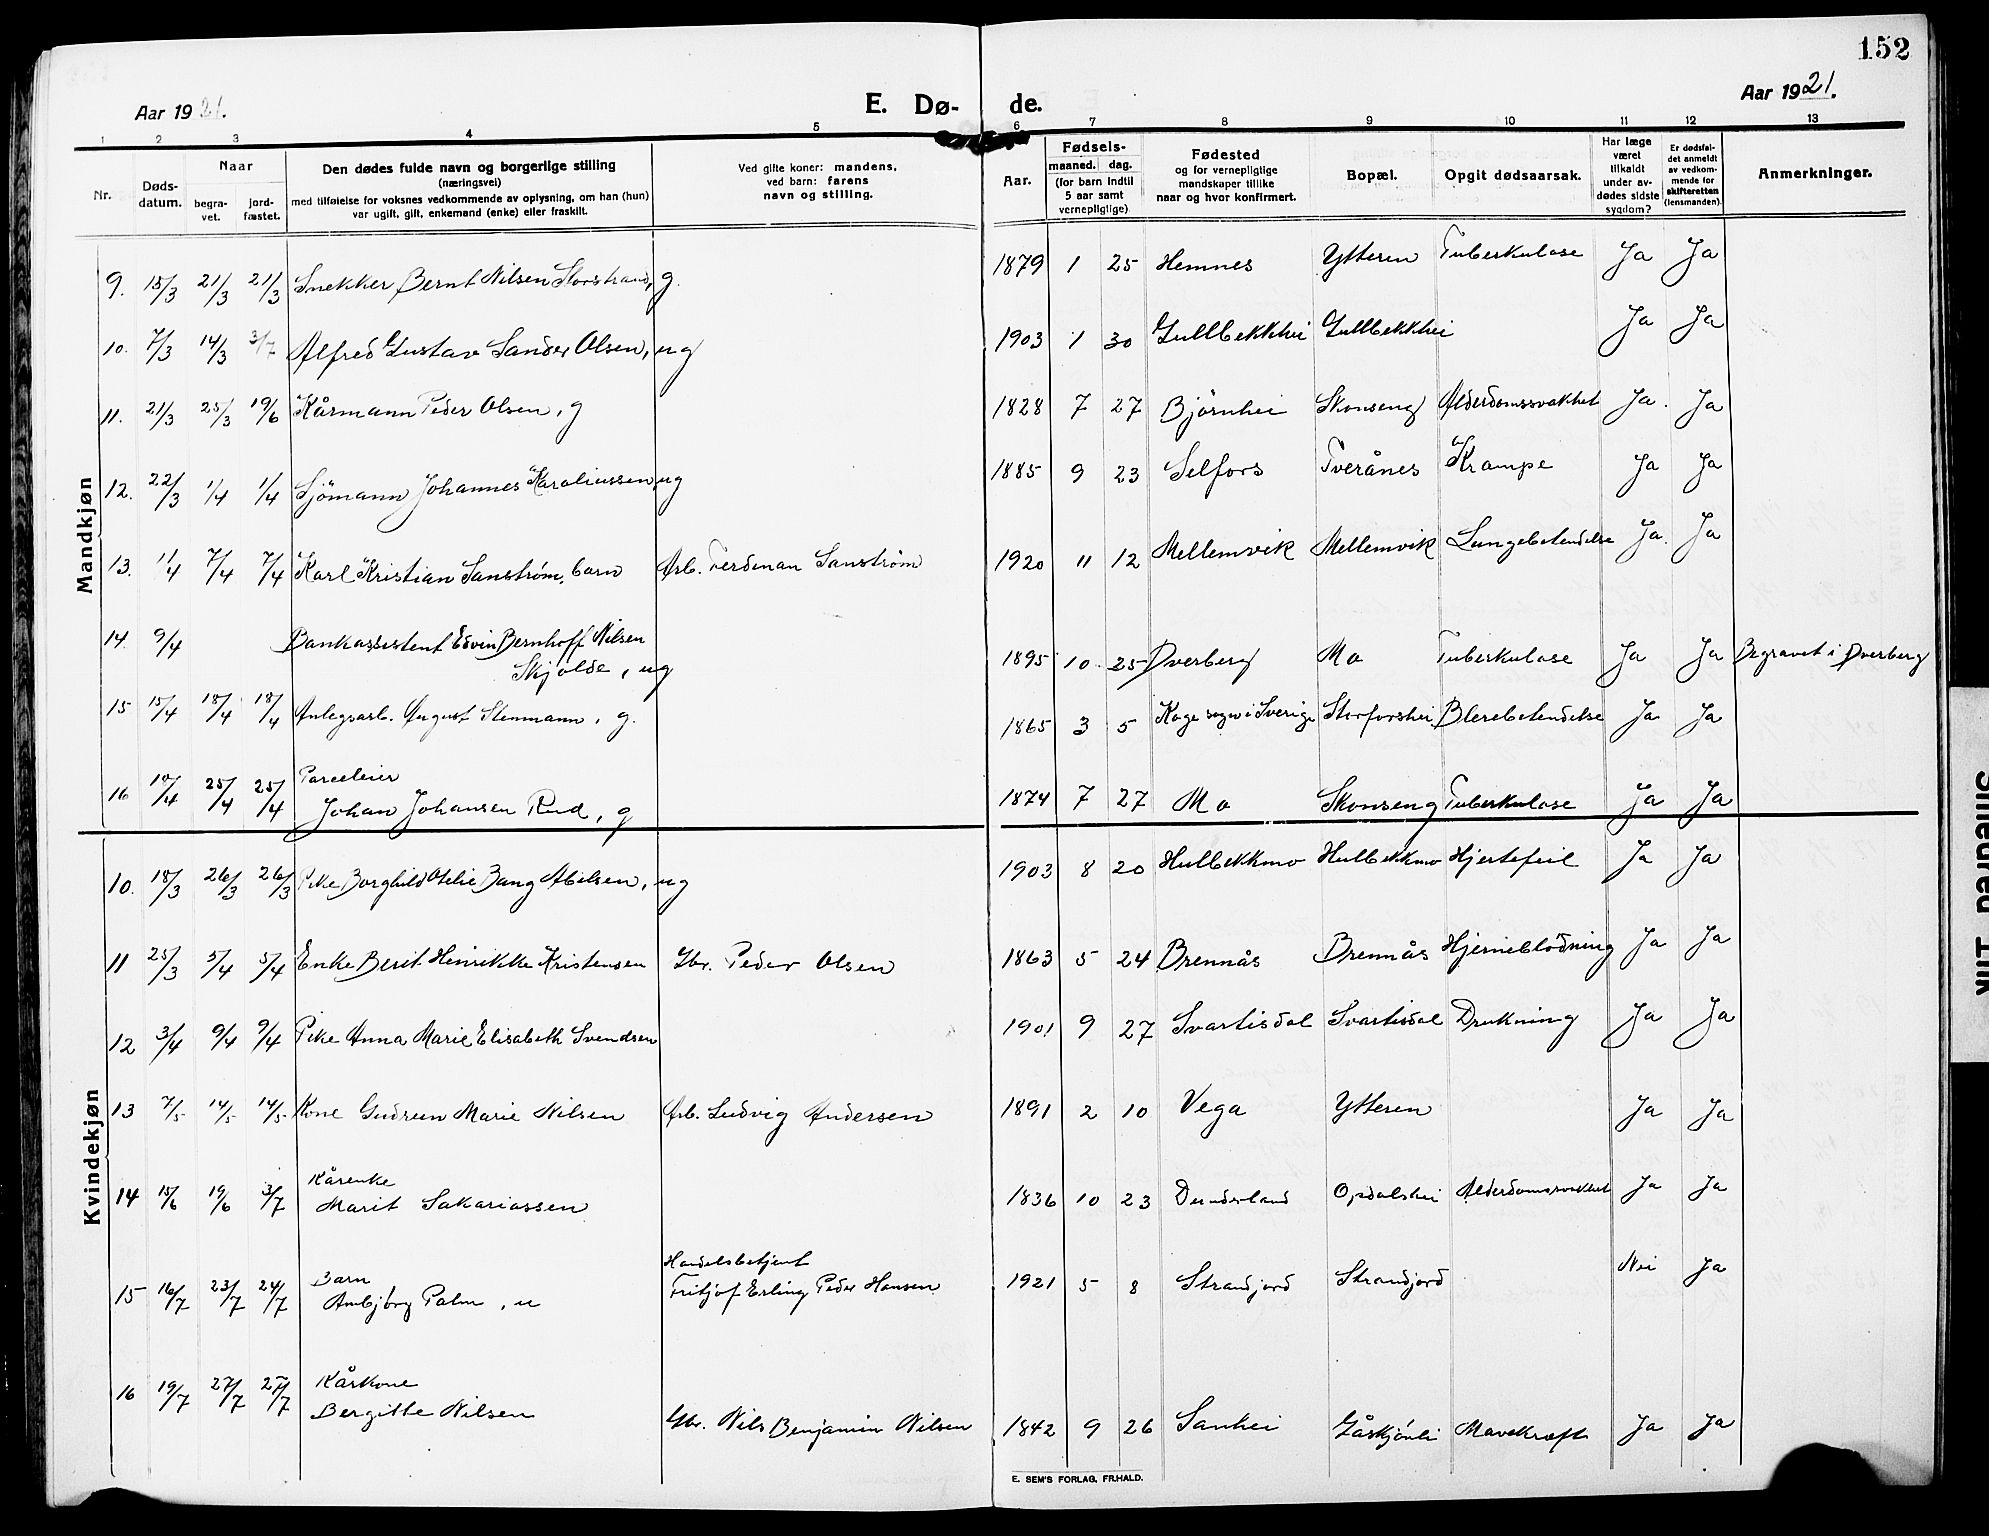 152
Aar 1921.
E. Dø-
de.
Aar 1921.
1 2 3 4 5 6 7 8 9 10 11 12 13
Nr.
Døds-
datum.
Naar
begra-
vet.
jord-
fæstet.
Den dødes fulde navn og borgerlige stilling
(næringsvei)
med tilføielse for voksnes vedkommende av oplysning, om han (hun)
var ugift, gift, enkemand (enke) eller fraskilt.
Ved gifte koner: mandens,
ved barn: farens
navn og stilling.
Aar.
Fødsels-
maaned. dag.
(for barn indtil
5 aar samt
vernepligtige)
Fødested
og for vernepligtige
mandskaper tillike
naar og hvor konfirmert.
Bopæl.
Opgit dødsaarsak.
Har læge
været
tilkaldt
under av-
dødes sidste
sygdom?
Er dødsfal-
det anmeldt
av vedkom-
mende for
skifteretten
(lensmanden).
Anmerkninger.
Mandkjøn
9. 15/3 21/3 21/3 Snekker Bernt Nilsen Storstrand, g. 1879 1 25 Hemnes Ytteren Tuberkulose Ja Ja
10. 7/3 14/3 3/7 Alfred Gustav Sander Olsen, ug 1903 1 30 Gullbekkhei Gullbekkhei Ja Ja
11. 21/3 25/3 19/6 Kårmann Peder Olsen, g 1828 7 27 Bjørnhei Skonseng Alderdomssvakhet Ja. Ja
12. 22/3 1/4 1/4 Sjömann Johannes Karoliussen, ug 1885 9 23 Selfors Tverånes Krampe Ja Ja
13. 1/4 7/4 7/4 Karl Kristian Sanstrøm, barn Arb. Ferdinan Sanstrøm 1920 11 12 Mellemvik Mellemvik Lungebetendelse Ja. Ja
14. 9/4 Bankassistent Edvin Bernhoff Nilsen
Skjolde, ug 1895 10 25 Dverberg Mo Tuberkulose Ja Ja Begravet i Dverberg
15 15/4 18/4 18/4 Anlegsarb. August Stenmann, g. 1865 3 5 Kåge sogn i Sverige Storforshei Blerebetendelse Ja Ja
16 19/4 25/4 25/4 Parceleier
Johan Johansen Rud, g 1874 7 27 Mo Skonseng Tuberkulose Ja Ja
Kvindekjøn
10. 18/3 26/3 26/3 Pike Borghild Otelie Bang Abilsen, ug 1903 8 20 Hulbekkmo Hulbekkmo Hjertefeil Ja Ja
11 25/3 5/4 5/4 Enke Berit Henrikke Kristensen Gbr. Peder Olsen 1863 5 24 Brennås Brennås Hjerneblødning Ja Ja
12 3/4 9/4 9/4 Pike Anna Marie Elisabeth Svendsen 1901 9 27 Svartisdal Svartisdal Drukning Ja Ja
13 7/5 14/5 14/5 Kone Gudrun Marie Nilsen Arb. Ludvig Andersen 1891 2 10 Vega Ytteren Ja Ja
14 15/6 19/6 3/7 Kårenke
Marit Sakariassen 1836 10 23 Dunderland Opdalshei Alderdomssvakhet Ja Ja
15 16/7 23/7 24/7 Barn
Anbjørg Palm, u Handelsbetjent
Fritjof Erling Peder Hansen 1921 5 8 Strandjord Strandjord Nei Ja
16 19/7 27/7 27/7 Kårkone
Bergitte Nilsen Gbr. Nils Benjamin Nilsen 1842 9 26 Sanhei Gåskjønli Mavekræft Ja Ja
E. SEM'S FORLAG, FR.HALD.